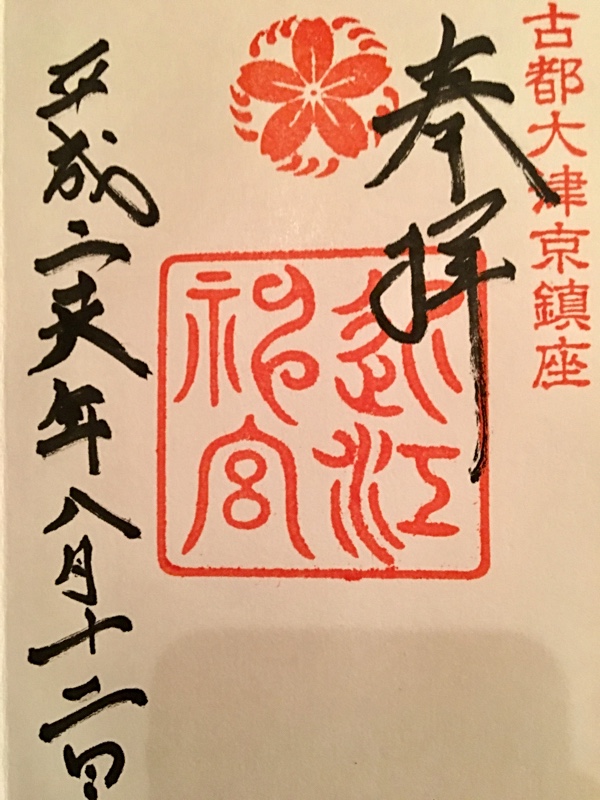 古都大津京鎮座
奉拝
近江
神宮
平成二年八月十二日